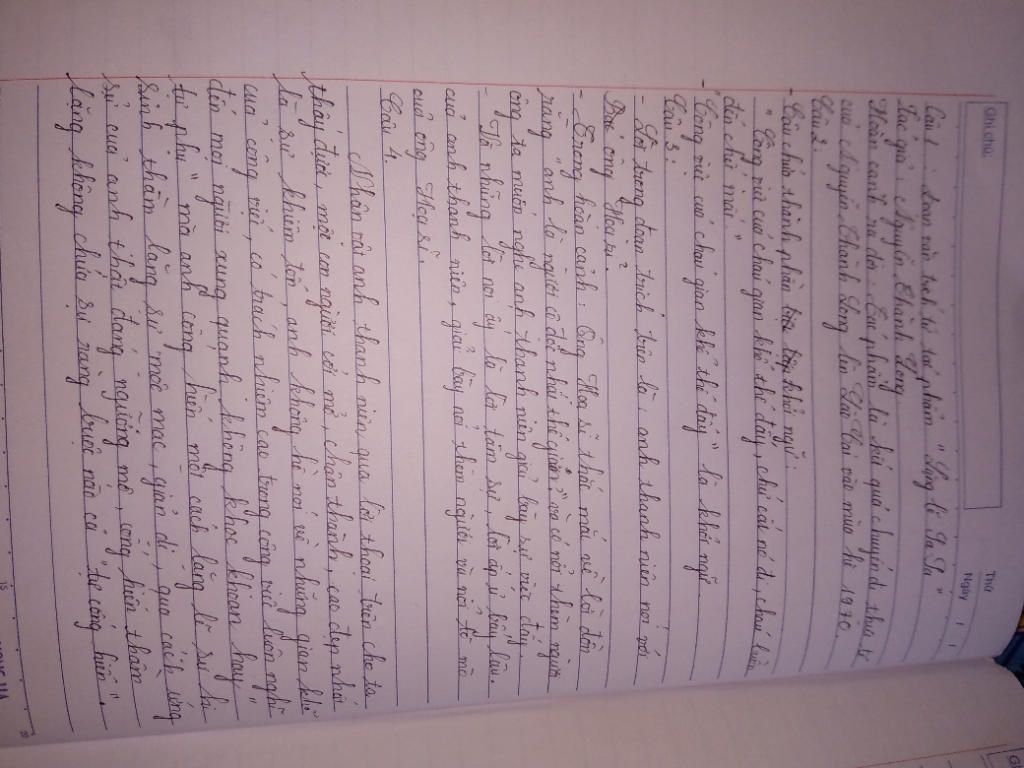 Ghi chú:
Thứ
Ngày / /
Câu 1: Đoạn văn trích từ tác phẩm "Lặng lẽ Sa Pa"
Tác giả: Nguyễn Thành Long
Hoàn cảnh ra đời: Tác phẩm là kết quả chuyến đi thực tế
của Nguyễn Thành Long lên Lào Cai vào mùa hè 1970.
Câu 2:
- Câu chứa thành phần khởi ngữ:
"Công việc của cháu gian khổ thế đấy, chứ cất nó đi, cháu buồn
đến chết mất."
- "Công việc của cháu gian khổ thế đấy" là khởi ngữ
Câu 3:
- Lời trong đoạn trích trên là: anh thanh niên nói với
Bác ông Họa sĩ.
- Trong hoàn cảnh: Ông Họa sĩ thắc mắc về lời đồn
rằng "anh là người cô độc nhất thế gian", và có nỗi thèm người
ông ta muốn nghe anh thanh niên giãi bày sự việc đấy
- Vì những lời nói ấy là lời tâm sự, lời ấp ủ bấy lâu
của anh thanh niên, giãi bày nỗi thèm người và nỗi tò mò
của ông Họa sĩ.
Câu 4.
Nhân vật anh thanh niên, qua lời thoại trên cho ta
thấy được, một con người cởi mở, chân thành, cao đẹp nhất
là sự khiêm tốn, anh không hề nói về những gian khổ
của công việc, có trách nhiệm cao trong công việc luôn nghĩ
đến mọi người xung quanh không khoe khoan hay
tự phụ" mà anh cống hiến một cách lặng lẽ sự hi
sinh thầm lặng sự mộc mạc, giản dị, qua cách sống
sử của anh thật đáng ngưỡng mộ, cống hiến thầm
lặng không chút sự ràng buộc nào cả "tự cống hiến".